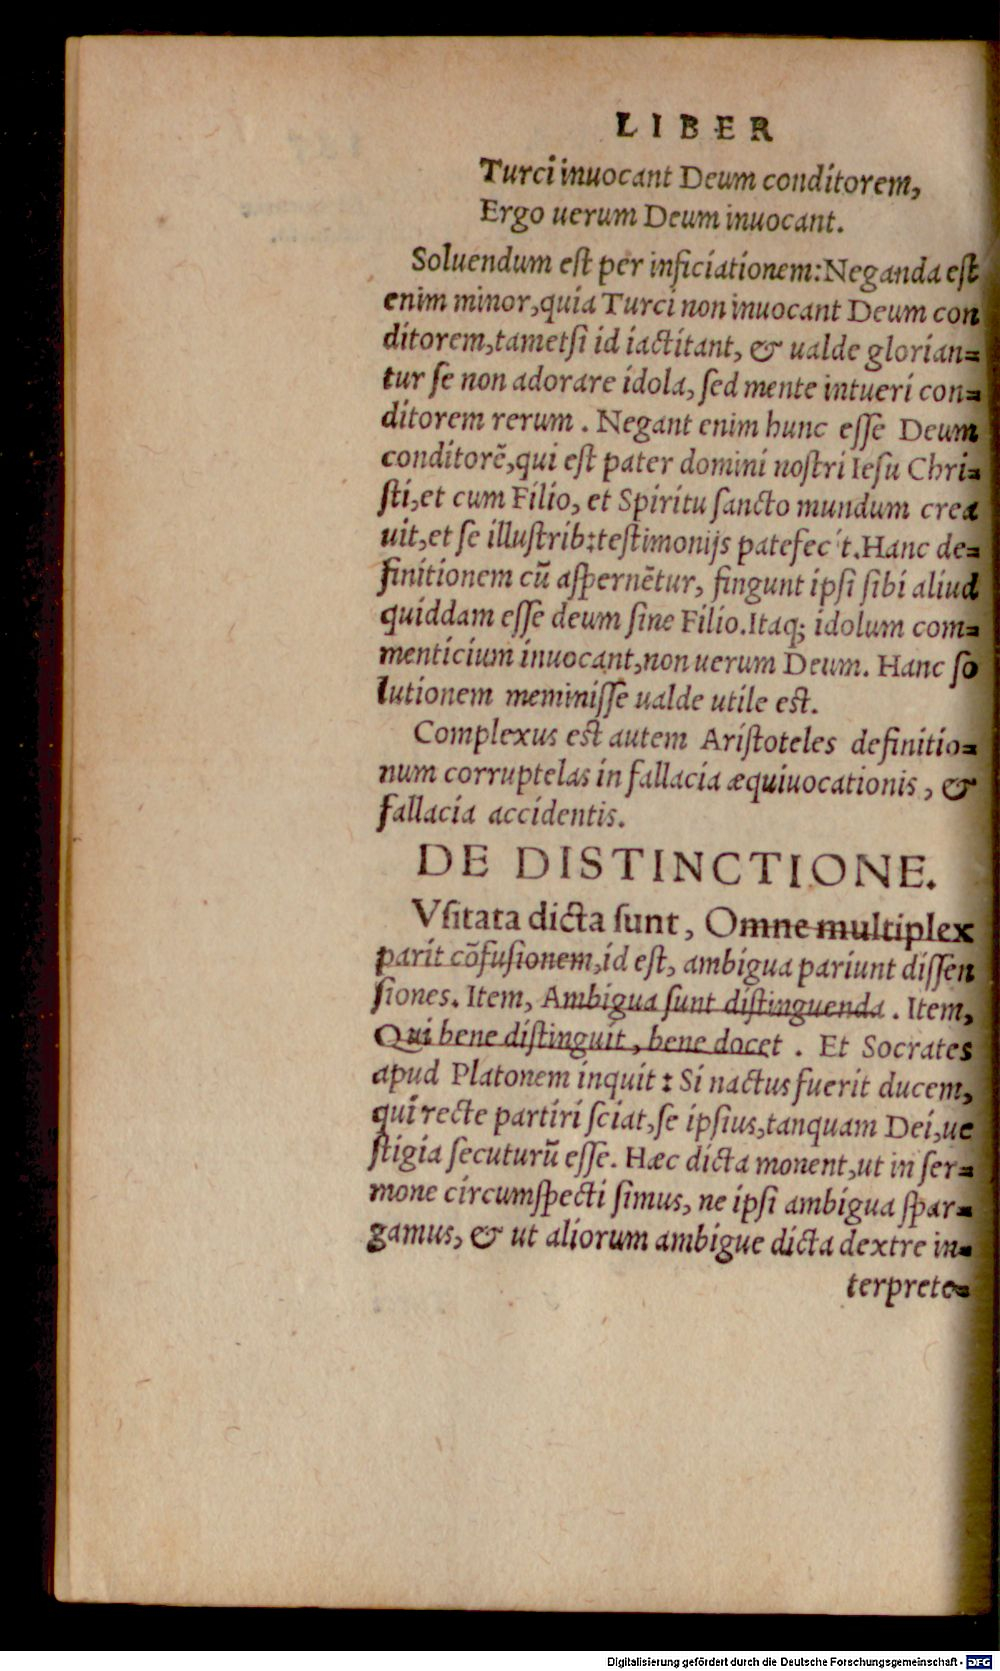 LIBER
Turci inuocant Deum conditorem,
Ergo uerum Deum inuocant.
Soluendum est per inficiationem: Neganda est
enim minor, quia Turci non inuocant Deum con
ditorem, tametsi id iactitant, & ualde glorian=
tur se non adorare idola, sed mente intueri con=
ditorem rerum. Negant enim hunc esse Deum
conditorẽ, qui est pater domini nostri Iesu Chri=
sti, et cum Filio, et Spiritu sancto mundum crea
uit, et se illustrib: testimonijs patefec t. Hanc de=
finitionem cũ aspernẽtur, fingunt ipsi sibi aliud
quiddam esse deum sine Filio. Itaq; idolum com=
menticium inuocant, non uerum Deum. Hanc so
lutionem meminisse ualde utile est.
Complexus est autem Aristoteles definitio=
num corruptelas in fallacia æquiuocationis, &
fallacia accidentis.
DE DISTINCTIONE.
Vsitata dicta sunt, Omne multiplex
parit cõfusionem, id est, ambigua pariunt dissen
siones. Item, Ambigua sunt distinguenda. Item,
Qui bene distinguit, bene docet. Et Socrates
apud Platonem inquit: Si nactus fuerit ducem,
qui recte partiri sciat, se ipsius, tanquam Dei, ue
stigia secuturũ esse. Hæc dicta monent, ut in ser=
mone circumspecti simus, ne ipsi ambigua spar=
gamus, & ut aliorum ambigue dicta dextre in=
terprete=
Digitalisierung gefördert durch die Deutsche Forschungsgemeinschaft - DFG